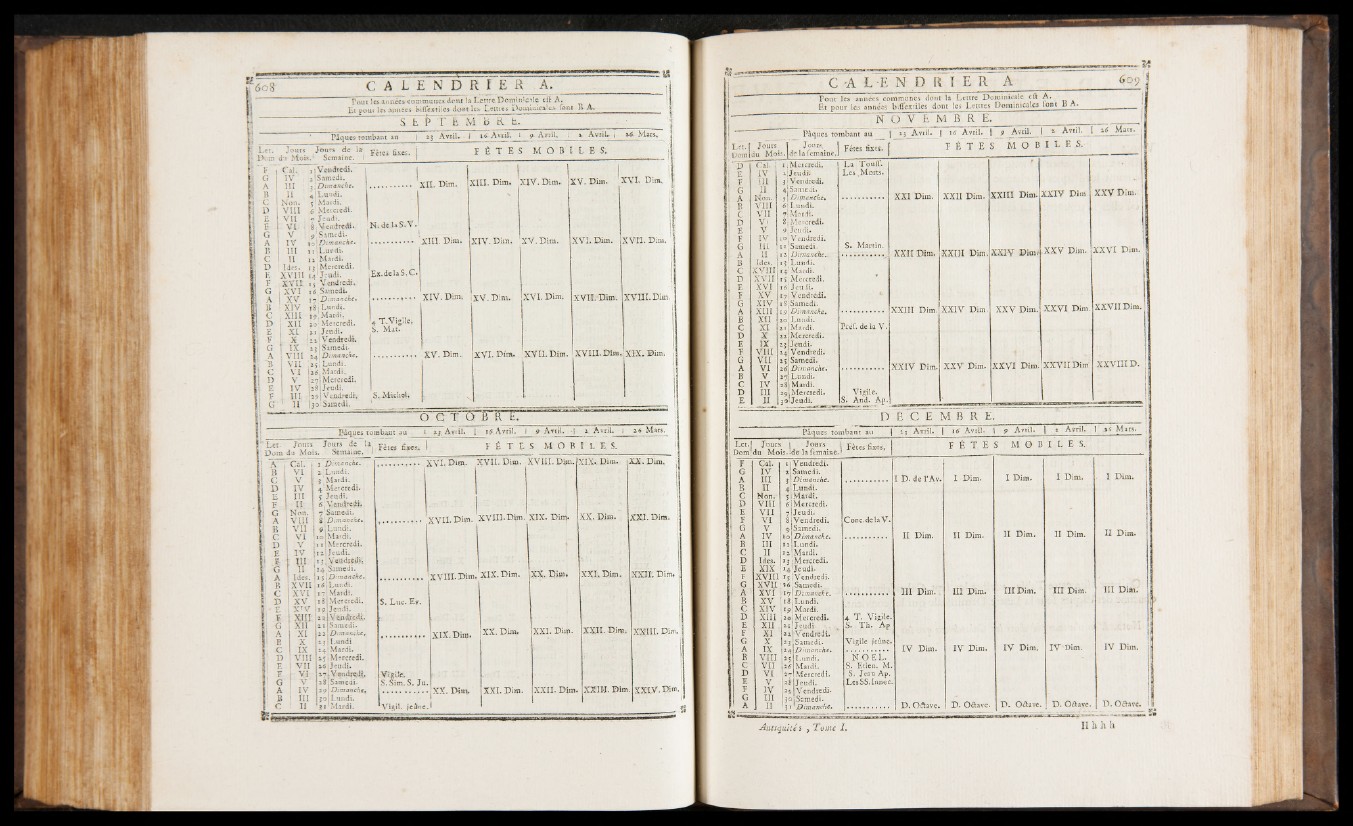 608 CALENDRIER A.
Pour les années communes dont la Lettre Dominicale est A.
Et pour les années bissextiles dont les Lettres Dominicales sont B A.
SEPTEMBRE.
Pâques tombant au | 23 Avril. | 16 Avril. | 9 Avril. | 2 Avril. | 26 Mars.
Let. Dom | Jours du Mois. | Jours de la Semaine. | Fêtes fixes. | FÊTES MOBILES.
F Cal. 1 Vendredi.
G IV 2 Samedi.
A III 3 Dimanche. ........... XII. Dim. XIII. Dim. XIV. Dim. XV. Dim. XVI. Dim.
B II 4 Lundi.
C Non. 5 Mardi.
D VIII 6 Mercredi.
E VII 7 Jeudi.
F VI 8 Vendredi. N. de la S. V.
G V 9 Samedi.
A IV 10 Dimanche. ........... XIII. Dim. XIV. Dim. XV. Dim. XVI. Dim. XVII. Dim.
B III 11 Lundi.
C II 12 Mardi.
D Ides. 13 Mercredi.
E XVIII 14 Jeudi. Ex. de la S. C.
F XVII 15 Vendredi.
G XVI 16 Samedi.
A XV 17 Dimanche. ........... XIV. Dim. XV. Dim. XVI. Dim. XVII. Dim. XVIII. Dim.
B XIV 18 Lundi.
C XIII 19 Mardi.
D XII 20 Mercredi. 4 T. Vigile.
E XI 21 Jeudi. S. Mat.
F X 22 Vendredi.
G IX 23 Samedi.
A VIII 24 Dimanche. ........... XV. Dim. XVI. Dim. XVII. Dim. XVIII. Dim. XIX. Dim.
B VII 25 Lundi.
C VI 26 Mardi.
D V 27 Mercredi.
E IV 28 Jeudi.
F III 29 Vendredi. S. Michel.
G II 30 Samedi.
OCTOBRE.
Pâques tombant au | 23 Avril. | 16 Avril. | 9 Avril. | 2 Avril. | 26 Mars.
Let. Dom | Jours du Mois. | Jours de la Semaine. | Fêtes fixes. | FÊTES MOBILES.
A Cal. 1 Dimanche. ........... XVI. Dim. XVII. Dim. XVIII. Dim. XIX. Dim. XX. Dim.
B VI 2 Lundi.
C V 3 Mardi.
D IV 4 Mercredi.
E III 5 Jeudi.
F II 6 Vendredi.
G Non. 7 Samedi.
A VIII 8 Dimanche. ........... XVII. Dim. XVIII. Dim. XIX. Dim. XX. Dim. XXI. Dim.
B VII 9 Lundi.
C VI 10 Mardi.
D V 11 Mercredi.
E IV 12 Jeudi.
F III 13 Vendredi.
G II 14 Samedi.
A Ides. 15 Dimanche. ........... XVIII. Dim. XIX. Dim. XX. Dim. XXI. Dim. XXII. Dim.
B XVII 16 Lundi.
C XVI 17 Mardi.
D XV 18 Mercredi. S. Luc. Ev.
E XIV 19 Jeudi.
F XIII 20 Vendredi.
G XII 21 Samedi.
A XI 22 Dimanche. ........... XIX. Dim. XX. Dim. XXI. Dim. XXII. Dim. XXIII. Dim.
B X 23 Lundi
C IX 24 Mardi.
D VIII 25 Mercredi.
E VII 26 Jeudi.
F VI 27 Vendredi. Vigile.
G V 28 Samedi. S. Sim. S. Ju.
A IV 29 Dimanche. ........... XX. Dim. XXI. Dim. XXII. Dim. XXIII. Dim. XXIV. Dim.
B III 30 Lundi.
C II 31 Mardi. Vigil. jeûne.
CALENDRIER A 609
Pour les années communes dont la Lettre Dominicale est A.
Et pour les années bissextiles dont les Lettres Dominicales sont B A.
NOVEMBRE.
Pâques tombant au | 23 Avril. | 16 Avril. | 9 Avril. | 2 Avril. | 26 Mars.
Let. Dom | Jours du Mois. | Jours de la semaine. | Fêtes fixes. | FÊTES MOBILES.
D Cal. 1 Mercredi. La Touss.
E IV 2 Jeudi. Les Morts.
F III 3 Vendredi.
G II 4 Samedi.
A Non. 5 Dimanche. ........... XXI Dim. XXII Dim. XXIII Dim. XXIV Dim. XXV Dim.
B VIII 6 Lundi.
C VII 7 Mardi.
D VI 8 Mercredi.
E V 9 Jeudi.
F IV 10 Vendredi.
G III 11 Samedi. S. Martin.
A II 12 Dimanche. ........... XXII Dim. XXIII Dim. XXIV Dim. XXV Dim. XXVI Dim.
B Ides. 13 Lundi.
C XVIII 14 Mardi.
D XVII 15 Mercredi.
E XVI 16 Jeudi.
F XV 17 Vendredi.
G XIV 18 Samedi.
A XIII 19 Dimanche. ........... XXIII Dim. XXIV Dim. XXV Dim. XXVI Dim. XXVII Dim.
B XII 20 Lundi.
C XI 21 Mardi. Préf. de la V.
D X 22 Mercredi.
E IX 23 Jeudi.
F VIII 24 Vendredi.
G VII 25 Samedi.
A VI 26 Dimanche. ........... XXIV Dim. XXV Dim. XXVI Dim. XXVII Dim. XXVIII D.
B V 27 Lundi.
C IV 28 Mardi.
D III 29 Mercredi. Vigile.
E II 30 Jeudi. S. And. Ap.
DECEMBRE.
Pâques tombant au | 23 Avril. | 16 Avril. | 9 Avril. | 2 Avril. | 26 Mars.
Let. Dom | Jours du Mois. | Jours de la semaine. | Fêtes fixes. | FÊTES MOBILES.
F Cal. 1 Vendredi.
G IV 2 Samedi.
A III 3 Dimanche. ........... I D. de l'Av. I Dim. I Dim. I Dim. I Dim.
B II 4 Lundi.
C Non. 5 Mardi.
D VIII 6 Mercredi.
E VII 7 Jeudi.
F VI 8 Vendredi. Conc. de la V.
G V 9 Samedi.
A IV 10 Dimanche. ........... II Dim. II Dim. II Dim. II Dim. II Dim.
B III 11 Lundi.
C II 12 Mardi.
D Ides. 13 Mercredi.
E XIX 14 Jeudi.
F XVIII 15 Vendredi.
G XVII 16 Samedi.
A XVI 17 Dimanche. ........... III Dim. III Dim. III Dim. III Dim. III Dim.
B XV 18 Lundi.
C XIV 19 Mardi.
D XIII 20 Mercredi. 4 T. Vigile.
E XII 21 Jeudi. S. Th. Ap
F XI 22 Vendredi.
G X 23 Samedi. Vigile jeûne.
A IX 24 Dimanche. ........... IV Dim. IV Dim. IV Dim. IV Dim. IV Dim.
B VIII 25 Lundi. NOEL.
C VII 26 Mardi. S. Etien. M.
D VI 27 Mercredi. S. Jean Ap.
E V 28 Jeudi. Les SS. Innoc.
F IV 29 Vendredi.
G III 30 Samedi.
A II 31 Dimanche. ........... D. Octave. D. Octave. D. Octave. D. Octave. D. Octave.
Antiquités, Tome I. Hhhh